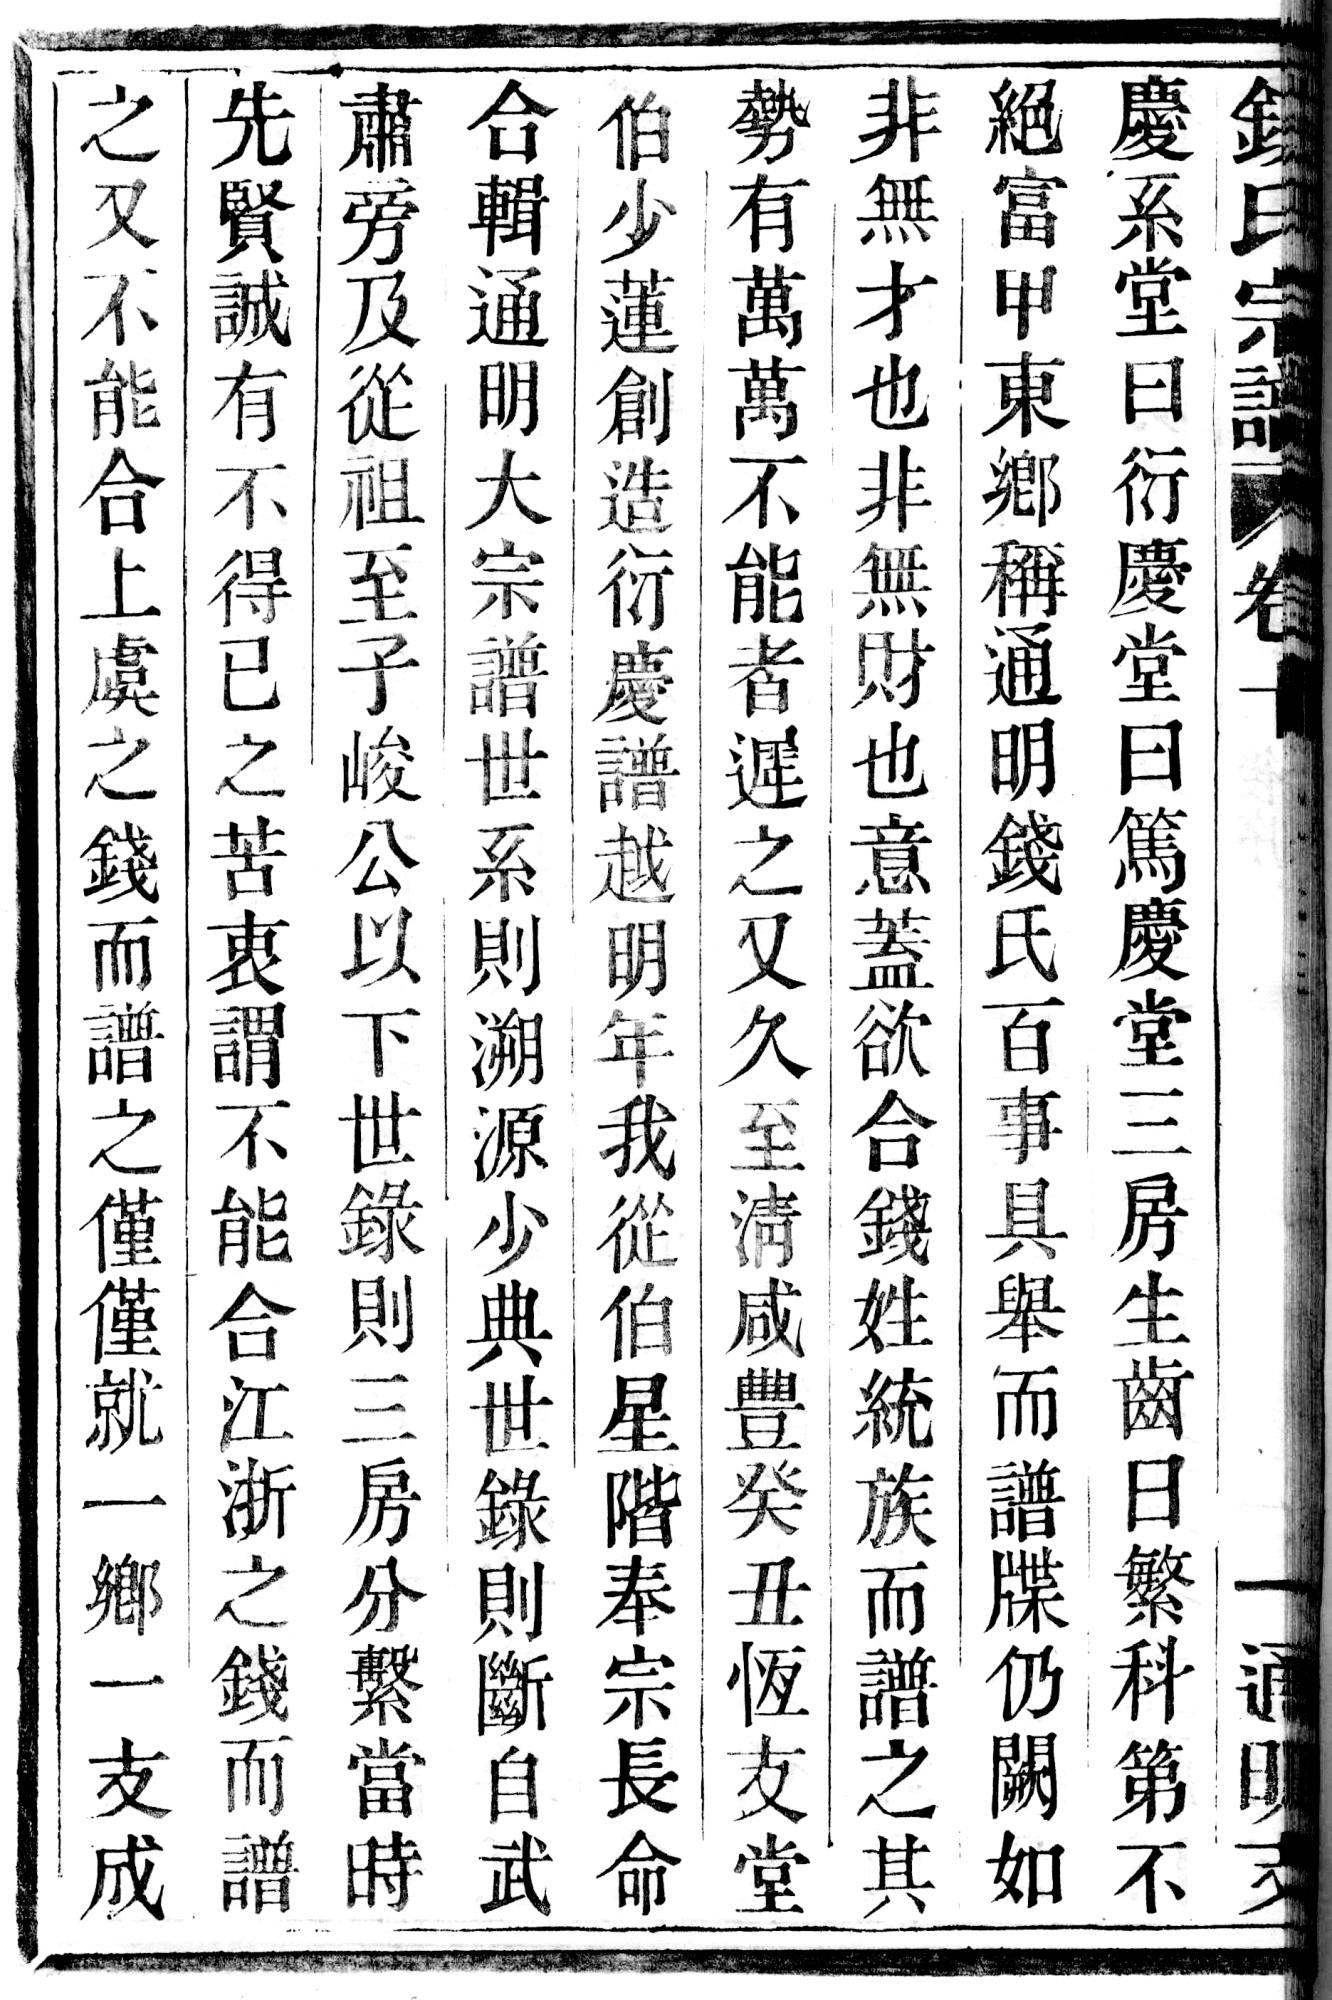 錢氏宗譜 卷一 一 通明支
慶系堂曰衍慶堂曰篤慶堂三房生齒日繁科第不
絕富甲東鄉稱通明錢氏百事具舉而譜牒仍闕如
非無才也非無財也意蓋欲合錢姓統族而譜之其
勢有萬萬不能者遲之又久至淸咸豐癸丑恆友堂
伯少蓮創造衍慶譜越明年我從伯星階奉宗長命
合輯通明大宗譜世系則溯源少典世錄則斷自武
肅旁及從祖至子峻公以下世錄則三房分繫當時
先賢誠有不得已之苦衷謂不能合江浙之錢而譜
之又不能合上虞之錢而譜之僅僅就一鄉一支成